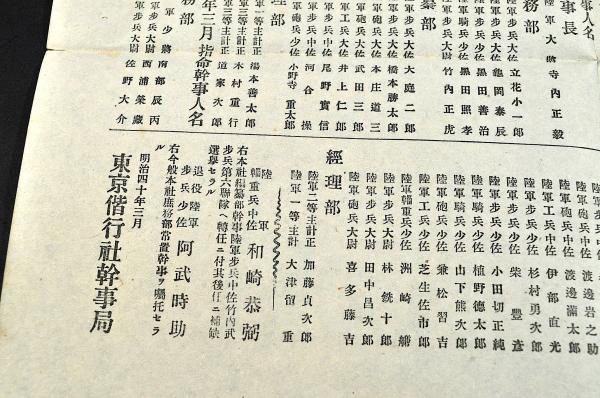 事人名
事長
陸軍大將 寺内正毅
務部
軍步兵大佐 立花小一郎
軍步兵大佐 龜岡泰辰
軍步兵少佐 黒田善治
軍騎兵少佐 黒田照孝
軍步兵大尉 竹内正虎
纂部
軍步兵大佐 大庭二郎
軍步兵少佐 橋本勝太郎
軍砲兵少佐 本庄道三
軍砲兵大尉 武田三郎
軍工兵大尉 井上仁郎
軍步兵中佐 尾野實信
軍步兵中佐 河合操
軍砲兵少佐 小野寺重太郎
理部
軍一等主計正 湯本善太郎
軍三等主計正 木村重行
軍三等主計正 道家次郎
年三月指命幹事人名
務部
軍少將 南部辰丙
軍步兵大尉 西浦榮藏
軍步兵少佐 佐野大介
陸軍步兵大佐 渡邊岩之助
陸軍砲兵中佐 渡邊滿太郎
陸軍工兵中佐 伊部直光
陸軍步兵少佐 杉村勇次郎
陸軍步兵少佐 柴豐彦
陸軍步兵少佐 小田切正純
陸軍騎兵少佐 植野德太郎
陸軍騎兵少佐 山下熊次郎
陸軍砲兵少佐 兼松習吉
陸軍工兵少佐 芝生佐市郎
陸軍輜重兵少佐 洲崎
陸軍步兵大尉 林銑十郎
陸軍步兵大尉 田中昌次郎
陸軍砲兵大尉 喜多藤吉
經理部
陸軍二等主計正 加藤貞次郎
陸軍一等主計 大津留重
陸軍輜重兵中佐 和崎恭弼
右本社編纂部幹事陸軍步兵中佐竹内武
步兵第六聯隊ヘ轉任ニ付其後任ニ補缺
選擧セラル
退役陸軍步兵少佐 阿武時助
右今般本社庶務部常置幹事ヲ囑托セラ
ル
明治四十年三月
東京偕行社幹事局